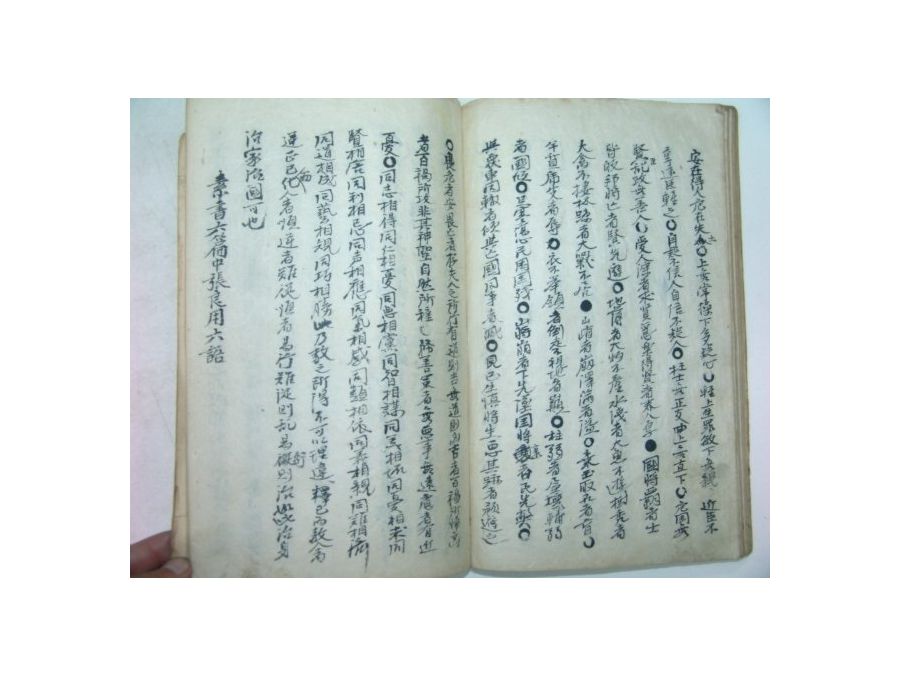 安在得人危在失士〇上無常操下多疑心〇輕上生罪侮下無親 近臣不
重遠臣輕之〇自疑不信人自信不疑人〇枉士無正友曲上無直下〇危国無
賢人乱政無善人〇愛人深者求賢急樂得賢者養人厚●國將霸者士
皆㱕邦將亡者賢先避〇地薄者大物不產水淺者大魚不遊樹禿者
大禽不棲林踈者大獸不居●山峭者崩澤滿者溢〇棄玉取石者盲〇
羊質虎皮者辱〇衣不擧領者倒走不視地者顚〇柱弱者屋壞輔弱
者國傾〇足寒傷心民怨國傷〇山將崩者下先隳國將衰者民先弊〇
與覆車同軌者傾與亡國同事者滅〇見已生愼將生惡其跡者預避之
〇畏危者安畏亡者存夫人之所行有道則吉無道則凶吉者百福所㱕凶
者百禍所攻非其神聖自然所種〇務善策者無惡事無遠慮者有近
憂〇同志相得同仁相憂同惡相黨同智相謀同美相妬同憂相末同
賢相居同利相忌同声相應同氣相感同類相依同義相親同難相濟
同道相成同藝相規同巧相勝此乃數之所得不可以理違釋己而敎
逆正己化人者愼逆者難從愼者易行難從則乱易行則治此治身
治家治國可也
素書六篇中張良用六語